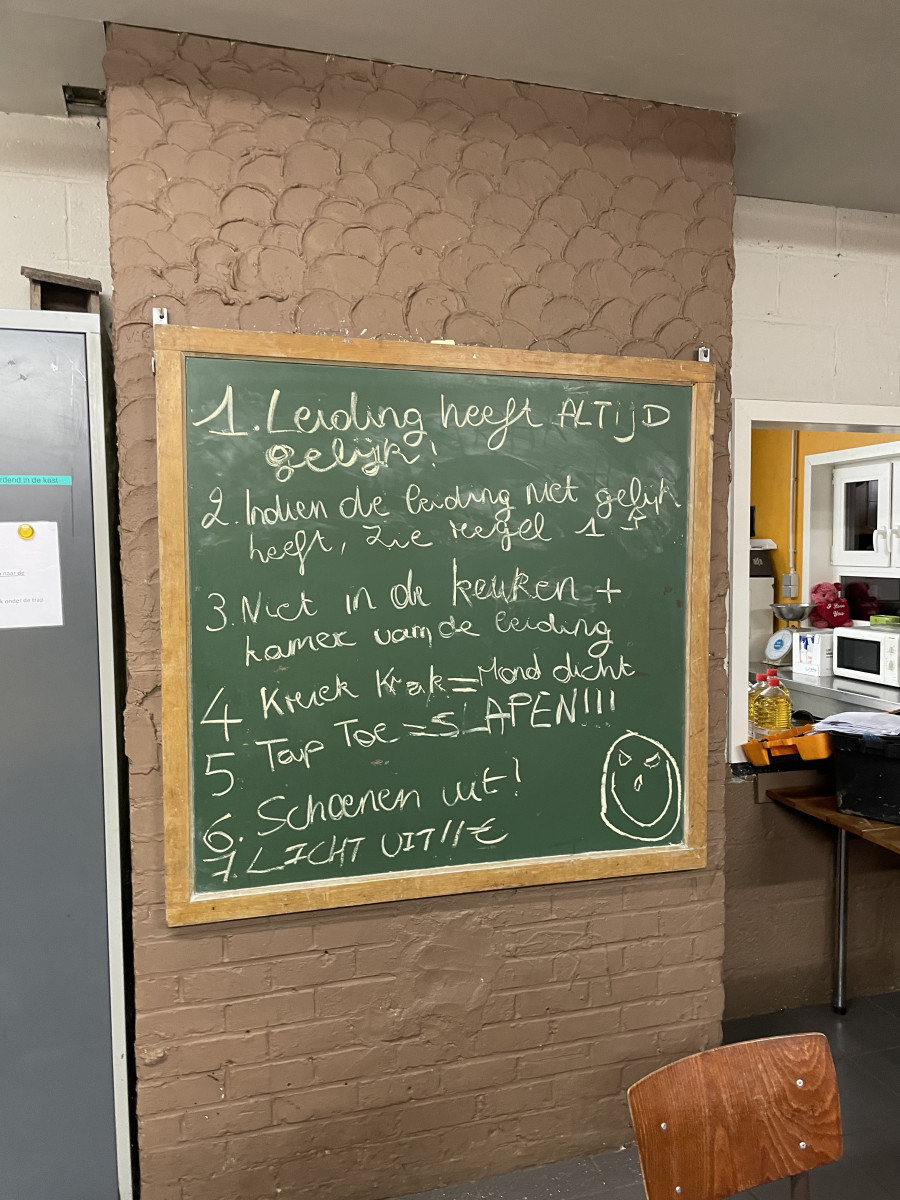 1. Leiding heeft ALTIJD
gelijk!
2. Indien de leiding niet gelijk
heeft, zie regel 1
3. Niet in de keuken +
kamer van de leiding
4 Kriek Krak = Mond dicht
5 Tap Toe = SLAPEN!!!
6. Schoenen uit!
7. LICHT UIT!! €
rdend in de kast
k onder de trap
I Love
You